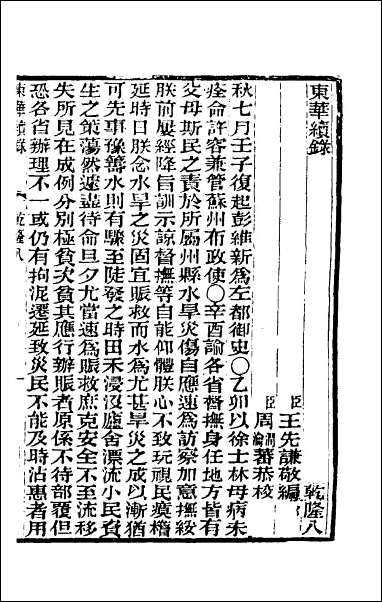 東華續錄
乾隆八
臣王先謙敬編
臣周潤蕃恭校
秋七月壬子復起彭維新為左都御史○乙卯以徐士林母病未
痊命許容兼管蘇州布政使○辛酉諭各省督撫身任地方皆有
父母斯民之責於所屬州縣水旱災傷自應速為訪察加意撫綏
朕前屢經降旨訓示諒督撫等自能仰體朕心不致玩視民瘼稽
延時日朕念水旱之災固宜賑救而水為尤甚旱災之成以漸猶
可先事豫籌水則有驟至陡發之時田禾浸沒廬舍漂流小民資
生之策蕩然速盡待命旦夕尤當速為賑救庶克安全不至流移
失所見在成例分別極貧次貧其應行辦賑者原係不待部覆但
恐各省辦理不一或仍有拘泥遷延致災民不能及時沾惠者用
東華續錄
乾隆八
一